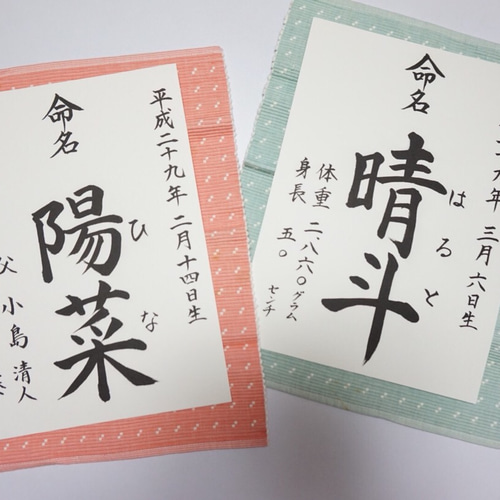 平成二十九年 二月十四日生
命名
陽菜
ひな
父 小島 清人
九年 三月六日生
命名
晴斗
はると
体重 二八六〇グラム
身長 五〇センチ